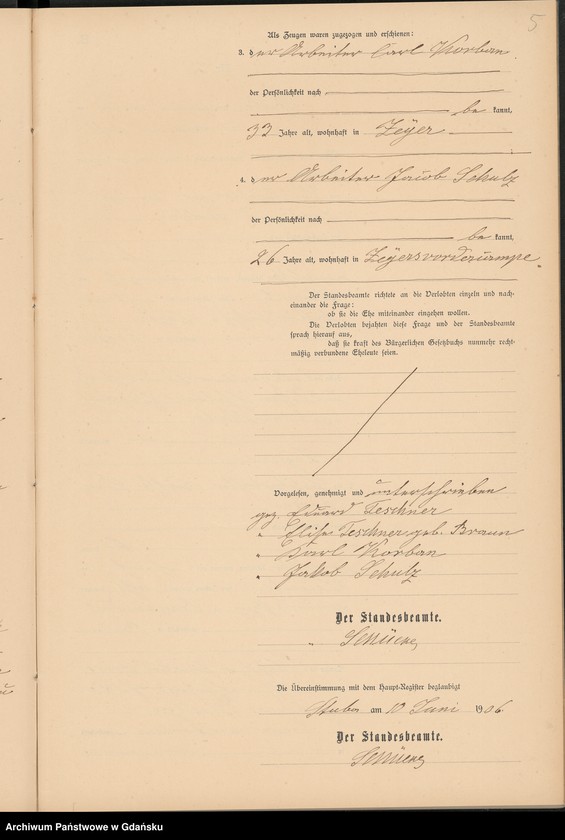 5
Als Zeugen waren zugezogen und erschienen:
3. der Arbeiter Carl Korban
der Persönlichkeit nach
be kannt,
33 Jahre alt, wohnhaft in Zeyer
4. der Arbeiter Jacob Schulz
der Persönlichkeit nach
be kannt,
26 Jahre alt, wohnhaft in Zeyersvorderkampe.
Der Standesbeamte richtete an die Verlobten einzeln und nach-
einander die Frage:
ob sie die Ehe miteinander eingehen wollen.
Die Verlobten bejahten diese Frage und der Standesbeamte
sprach hierauf aus,
daß sie kraft des Bürgerlichen Gesetzbuchs nunmehr recht-
mäßig verbundene Eheleute seien.
Vorgelesen, genehmigt und unterschrieben
gez. Eduard Teschner
" Elise Teschner geb. Braun
" Karl Korban
" Jakob Schulz
Der Standesbeamte.
"
Die Übereinstimmung mit dem Haupt-Register beglaubigt
Stuba am 10 Juni 1906.
Der Standesbeamte.
Archiwum Państwowe w Gdańsku